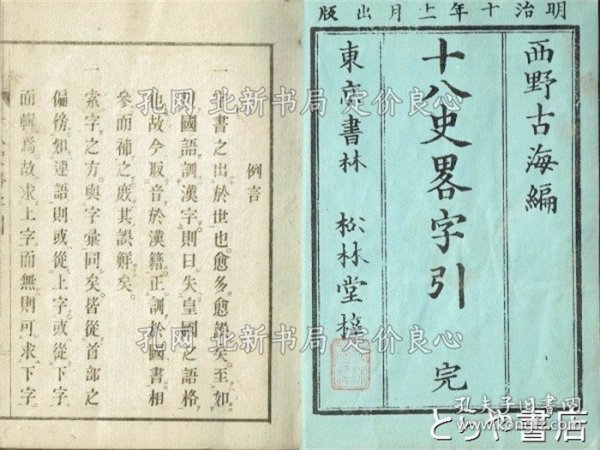 明治十年十二月出版
西野古海編
十八史畧字引 完
東京書林 松林堂梓
例言
一 字書之出於世也愈多愈譌矣至如
國語訓漢字則曰失皇國之語格
也故今取音於漢籍正訓於國書相
參而補之庶其誤鮮矣
一 索字之方與字彙同矣皆從首部之
偏傍如連語則或從上字或從下字
而輯焉故求上字而無則可求下字
孔网 北新书局 定价良心
孔网 北新书局 定价良心
孔夫子旧书网
www.kongfz.com
とらや書店